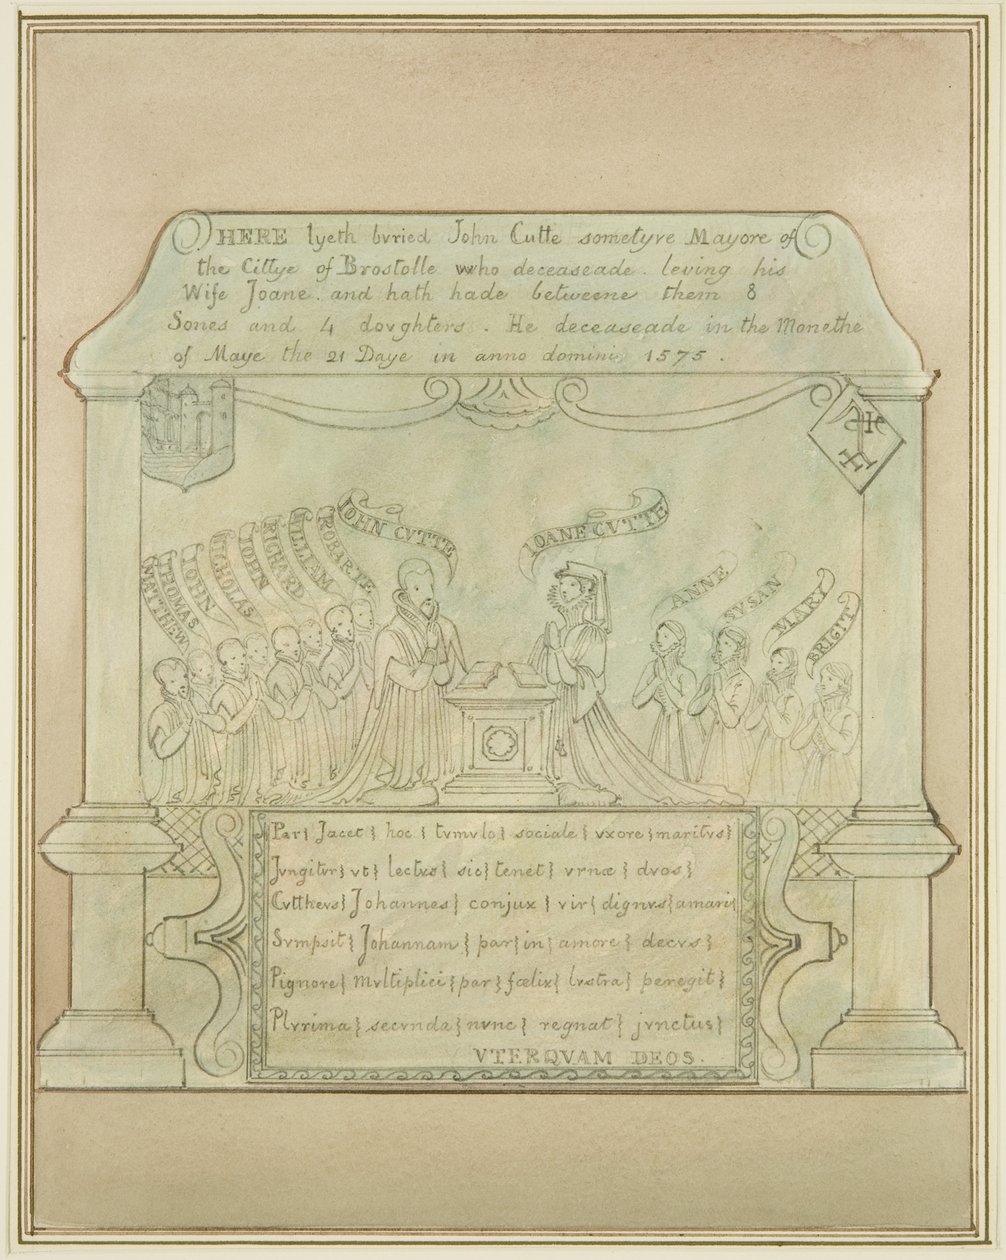 HERE lyeth bvried John Cutte sometyre Mayore of
the Cittye of Brostolle who deceaseade. leving his
Wife Joane. and hath hade betweene them 8
Sones and 4 dovghters. He deceaseade in the Monethe
of Maye the 21 Daye in anno domini 1575.
MATTHEW
THOMAS
JOHN
NICHOLAS
JOHN
RICHARD
WILLIAM
ROBARTE
JOHN CVTTE
IOANE CVTTE
ANNE
SVSAN
MARY
BRIGIT
Par} Jacet} hoc} tvmvlo} sociale} vxore} maritvs}
Jvngitvr} vt} lectvs} sic} tenet} vrnæ} dvos}
Cvtthevs} Johannes} conjux} vir} dignvs} amari}
Svmpsit} Johannam} par} in} amore} decvs}
Pignore} mvltiplici} par} fœlix} lvstra} peregit}
Plvrima} secvnda} nvnc} regnat} jvnctus}
VTERQVAM DEOS.